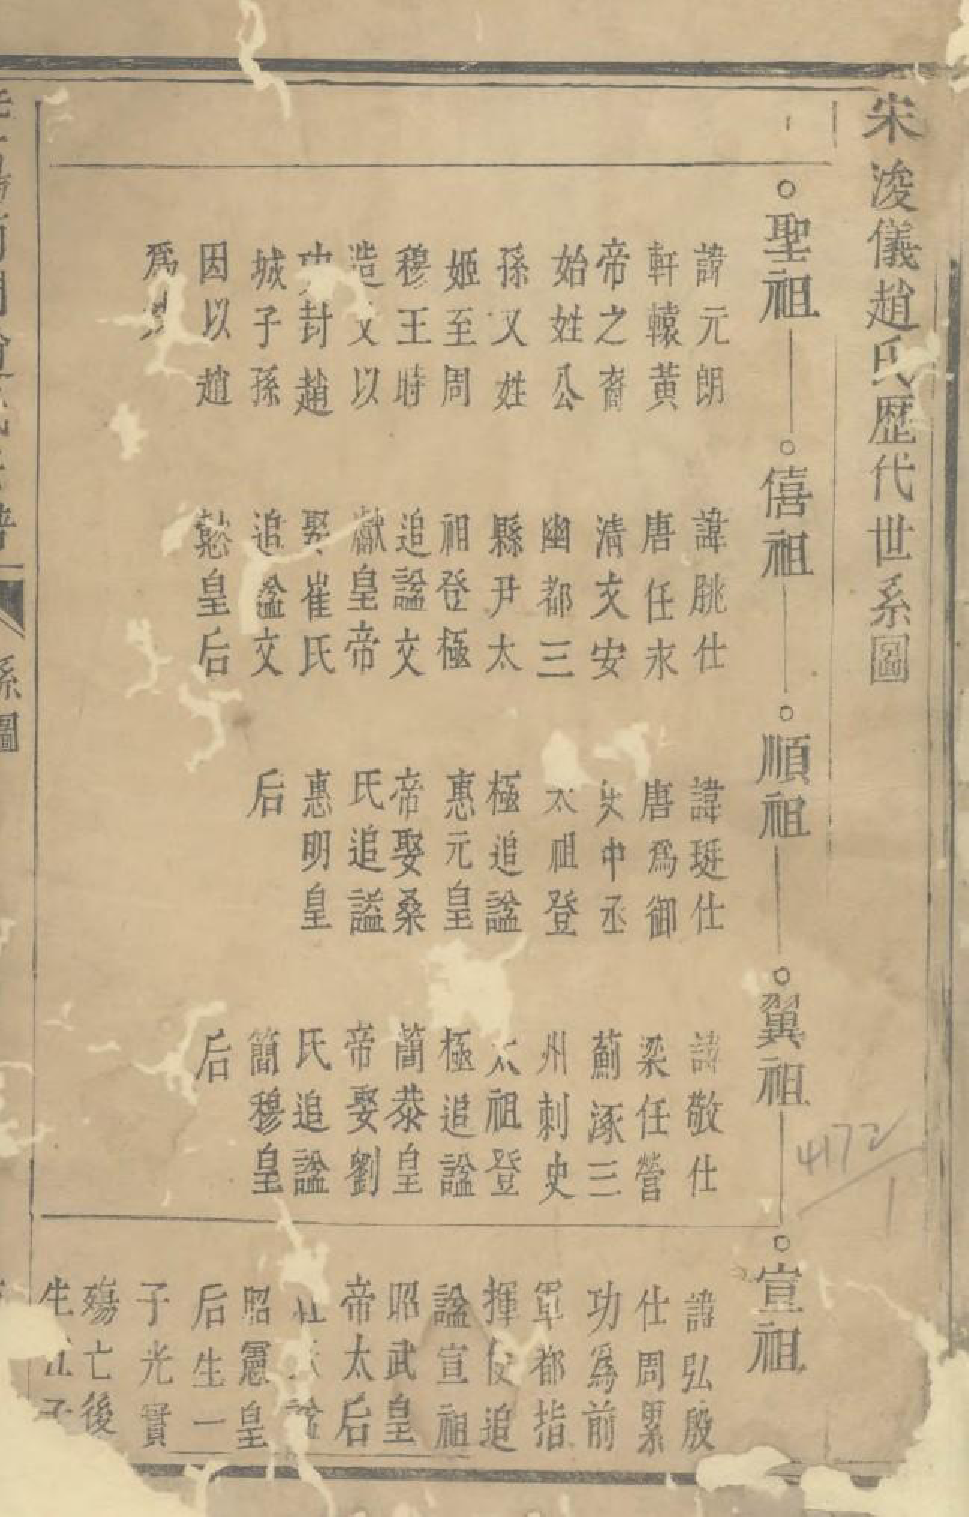 宋浚儀趙氏歷代世系圖
聖祖
諱元朗
軒轅黃
帝之裔
始姓公
孫又姓
姬至周
穆王時
造父以
功封趙
城子孫
因以趙
爲
僖祖
諱朓仕
唐任永
清文安
幽都三
縣尹太
祖登極
追諡文
獻皇帝
娶崔氏
追諡文
懿皇后
順祖
諱珽仕
唐爲御
史中丞
太祖登
極追諡
惠元皇
帝娶桑
氏追謚
惠明皇
后
翼祖
諱敬仕
梁任營
薊涿三
州刺史
太祖登
極追諡
簡恭皇
帝娶劉
氏追諡
簡穆皇
后
宣祖
諱弘殷
仕周累
功爲前
軍都指
揮使追
諡宣祖
昭武皇
帝太后
杜諡
昭憲皇
后生一
子光實
殤亡後
生子
系圖
4172
1